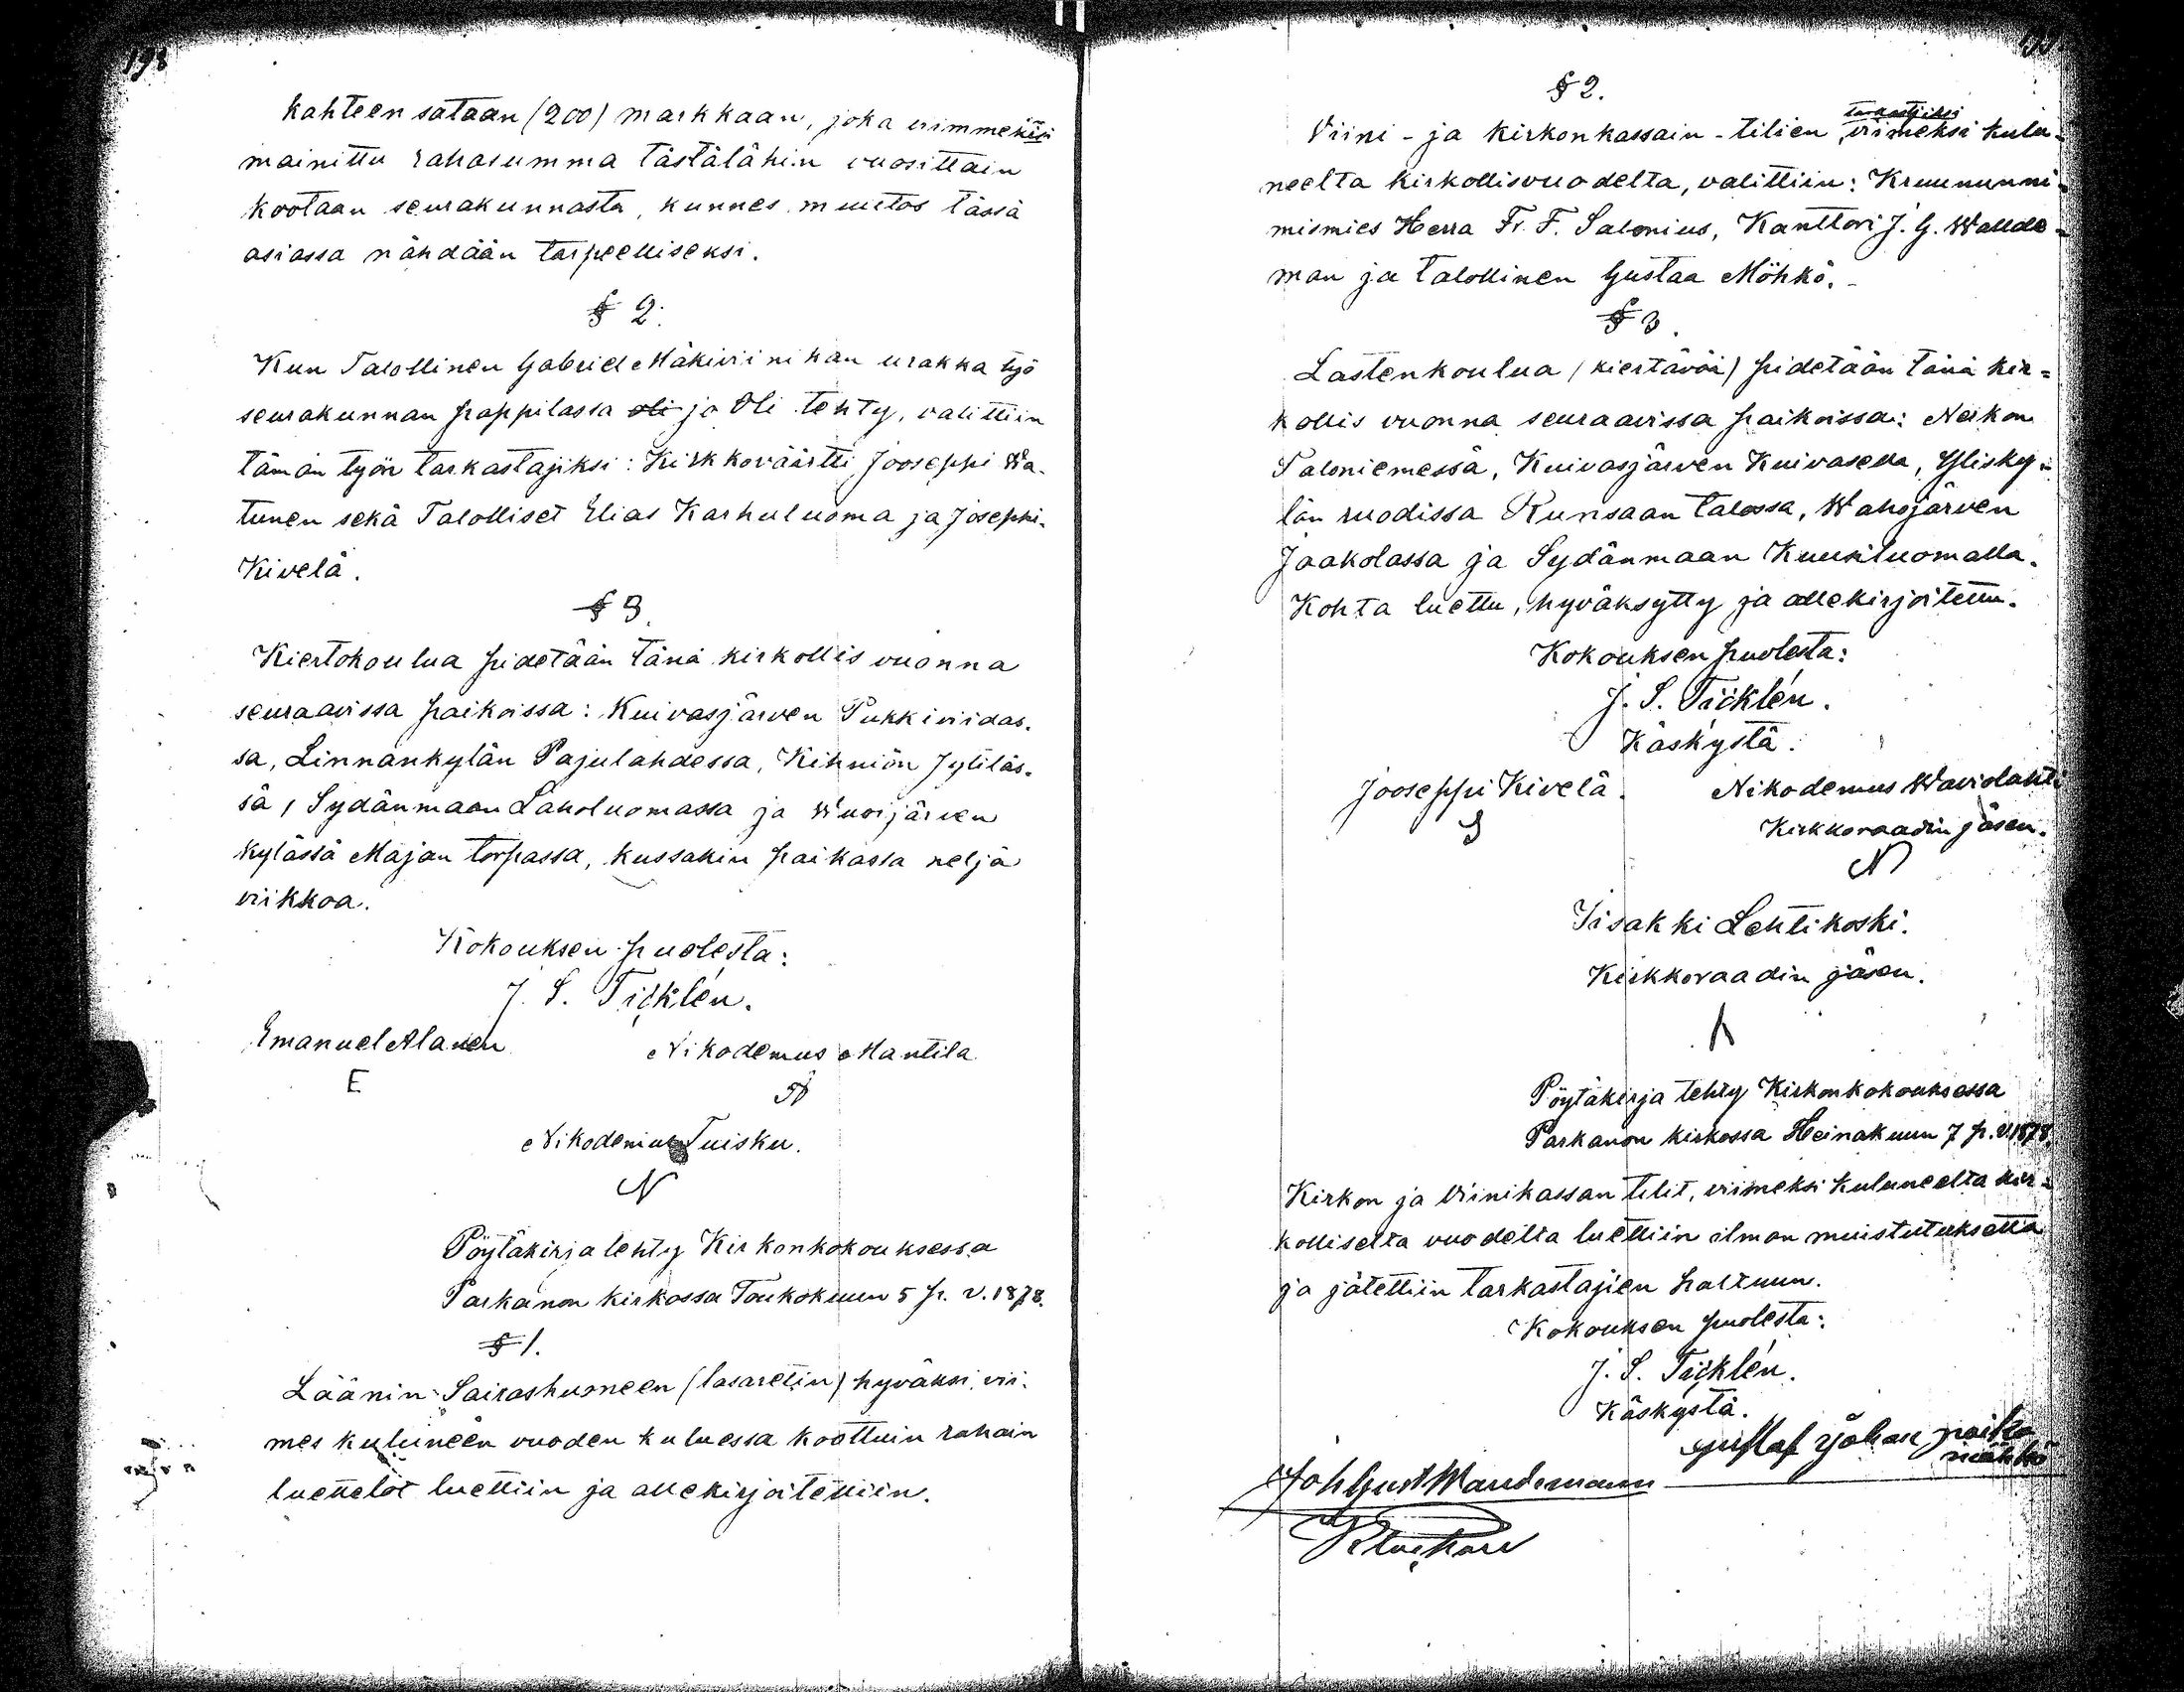 198
kahteen sataan (200) markkaan, joka viimmeksi
mainittu rahasumma tästälähin vuosittain
kootaan seurakunnasta, kunnes muutos tässä
asiassa nähdään tarpeelliseksi.
§ 2.
Kun Talollinen Gabriel Mäkiviinikan urakka työ
seurakunnan pappilassa oli jo Oli tehty, valittiin
tämän työn tarkastajiksi: Kirkkoväärtti Jooseppi Wa-
tunen sekä Talolliset Elias Karhuluoma ja Josephi
Kivelä.
§ 3.
Kiertokoulua pidetään tänä kirkollis vuonna
seuraavissa paikoissa: Kuivasjärven Pukkiviidas-
sa, Linnankylän Pajulahdessa, Kihniön Jyliläs-
sä, Sydänmaan Laholuomassa ja Wuorijärven
kylässä Majan torpassa, kussakin paikassa neljä
viikkoa.
Kokouksen puolesta:
J. S. Ticklén.
Emanuel Alanen Nikodemus Mantila
E
Nikodemus Tuisku.
N
Pöytäkirja tehty Kirkonkokouksessa
Parkanon kirkossa Toukokuun 5 p. v. 1878.
§ 1.
Läänin Sairashuoneen (lasaretin) hyväksi vii-
mes kuluneen vuoden kuluessa koottuin rahain
luettelot luettiin ja allekirjoitettiin.
§ 2.
tarkastajiksi
Viini- ja kirkonkassain-tilien viimeksi kulu-
neelta kirkollisvuodelta, valittiin: Kruununni-
mismies Herra Fr. F. Salonius, Kanttori J. G. Wallde-
man ja talollinen Gustaa Möhkö.
§ 3.
Lastenkoulua (kiertävää) pidetään tänä kir-
kollis vuonna seuraavissa paikoissa: Nerkon
Saloniemessä, Kuivasjärven Kuivasella, Yliskky-
län ruodissa Runsaan talossa, Wahojärven
Jaakolassa ja Sydänmaan Kuusiluomalla.
Kohta luettu, hyväksytty ja allekirjoitettu.
Kokouksen puolesta:
J. S. Ticklén.
Käskystä:
Jooseppi Kivelä. Nikodemus Wavidahti
Kirkkoraadin jäsen.
N
Iisakki Lehtikoski.
Kirkkoraadin jäsen.
Pöytäkirja tehty Kirkonkokouksessa
Parkanon kirkossa Heinakuun 7 p. v. 1878.
Kirkon ja Viinikassan tilit, viimeksi kuluneelta kir-
kolliselta vuodelta luettiin ilman muistutuksetta
ja jätettiin tarkastajien haltuun.
Kokouksen puolesta:
J. S. Ticklén.
Käskystä.
Gustaf Johan poika
möhkö
Joh Gust Wandemann